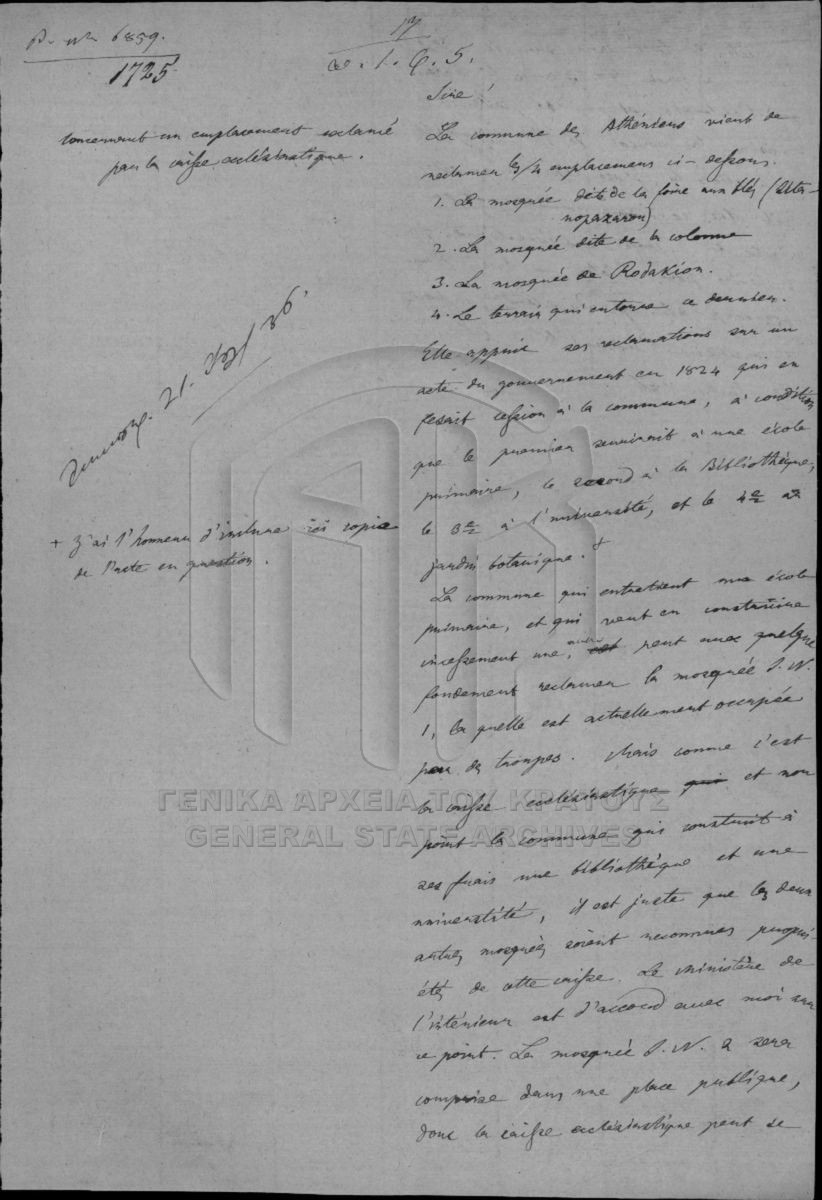 6859.
1725
1. 6. 5.
concernant un emplacement reclamé
par la caisse ecclésiastique.
21. 36.
+ J'ai l'honneur d'inclure ici copie
de l'acte en question.
Sire!
La commune des Athéniens vient de
reclamer les 4 emplacemens ci-dessous.
1. La mosquée dite de la foire aux blés (Sita-
ropazarou)
2. La mosquée dite de la colonne
3. La mosquée de Rodakion.
4. Le terrain qui entoure ce dernier.
Elle appuie ses reclamations sur un
acte du gouvernement en 1824 qui en
fesait cession à la commune, à condition
que le premier servirait à une école
primaire, le second à la Bibliothèque,
le 3e à l'université, et le 4e au
jardin botanique. +
La commune qui entretient une école
primaire, et qui veut en construire
incessement une, peut avec quelque
fondement reclamer la mosquée S. N.
1, la quelle est actuellement occupée
par des troupes. Mais comme c'est
la caisse ecclésiastique qui et non
point la commune qui construit à
ses frais une bibliothèque et une
université, il est juste que les deux
autres mosquées soient reconnues propri-
étés de cette caisse. Le ministère de
l'intérieur est d'accord avec moi sur
ce point. La mosquée S. N. 2 sera
comprise dans une place publique,
donc la caisse ecclésiastique peut se
ΓΕΝΙΚΑ ΑΡΧΕΙΑ ΤΟΥ ΚΡΑΤΟΥΣ
GENERAL STATE ARCHIVES